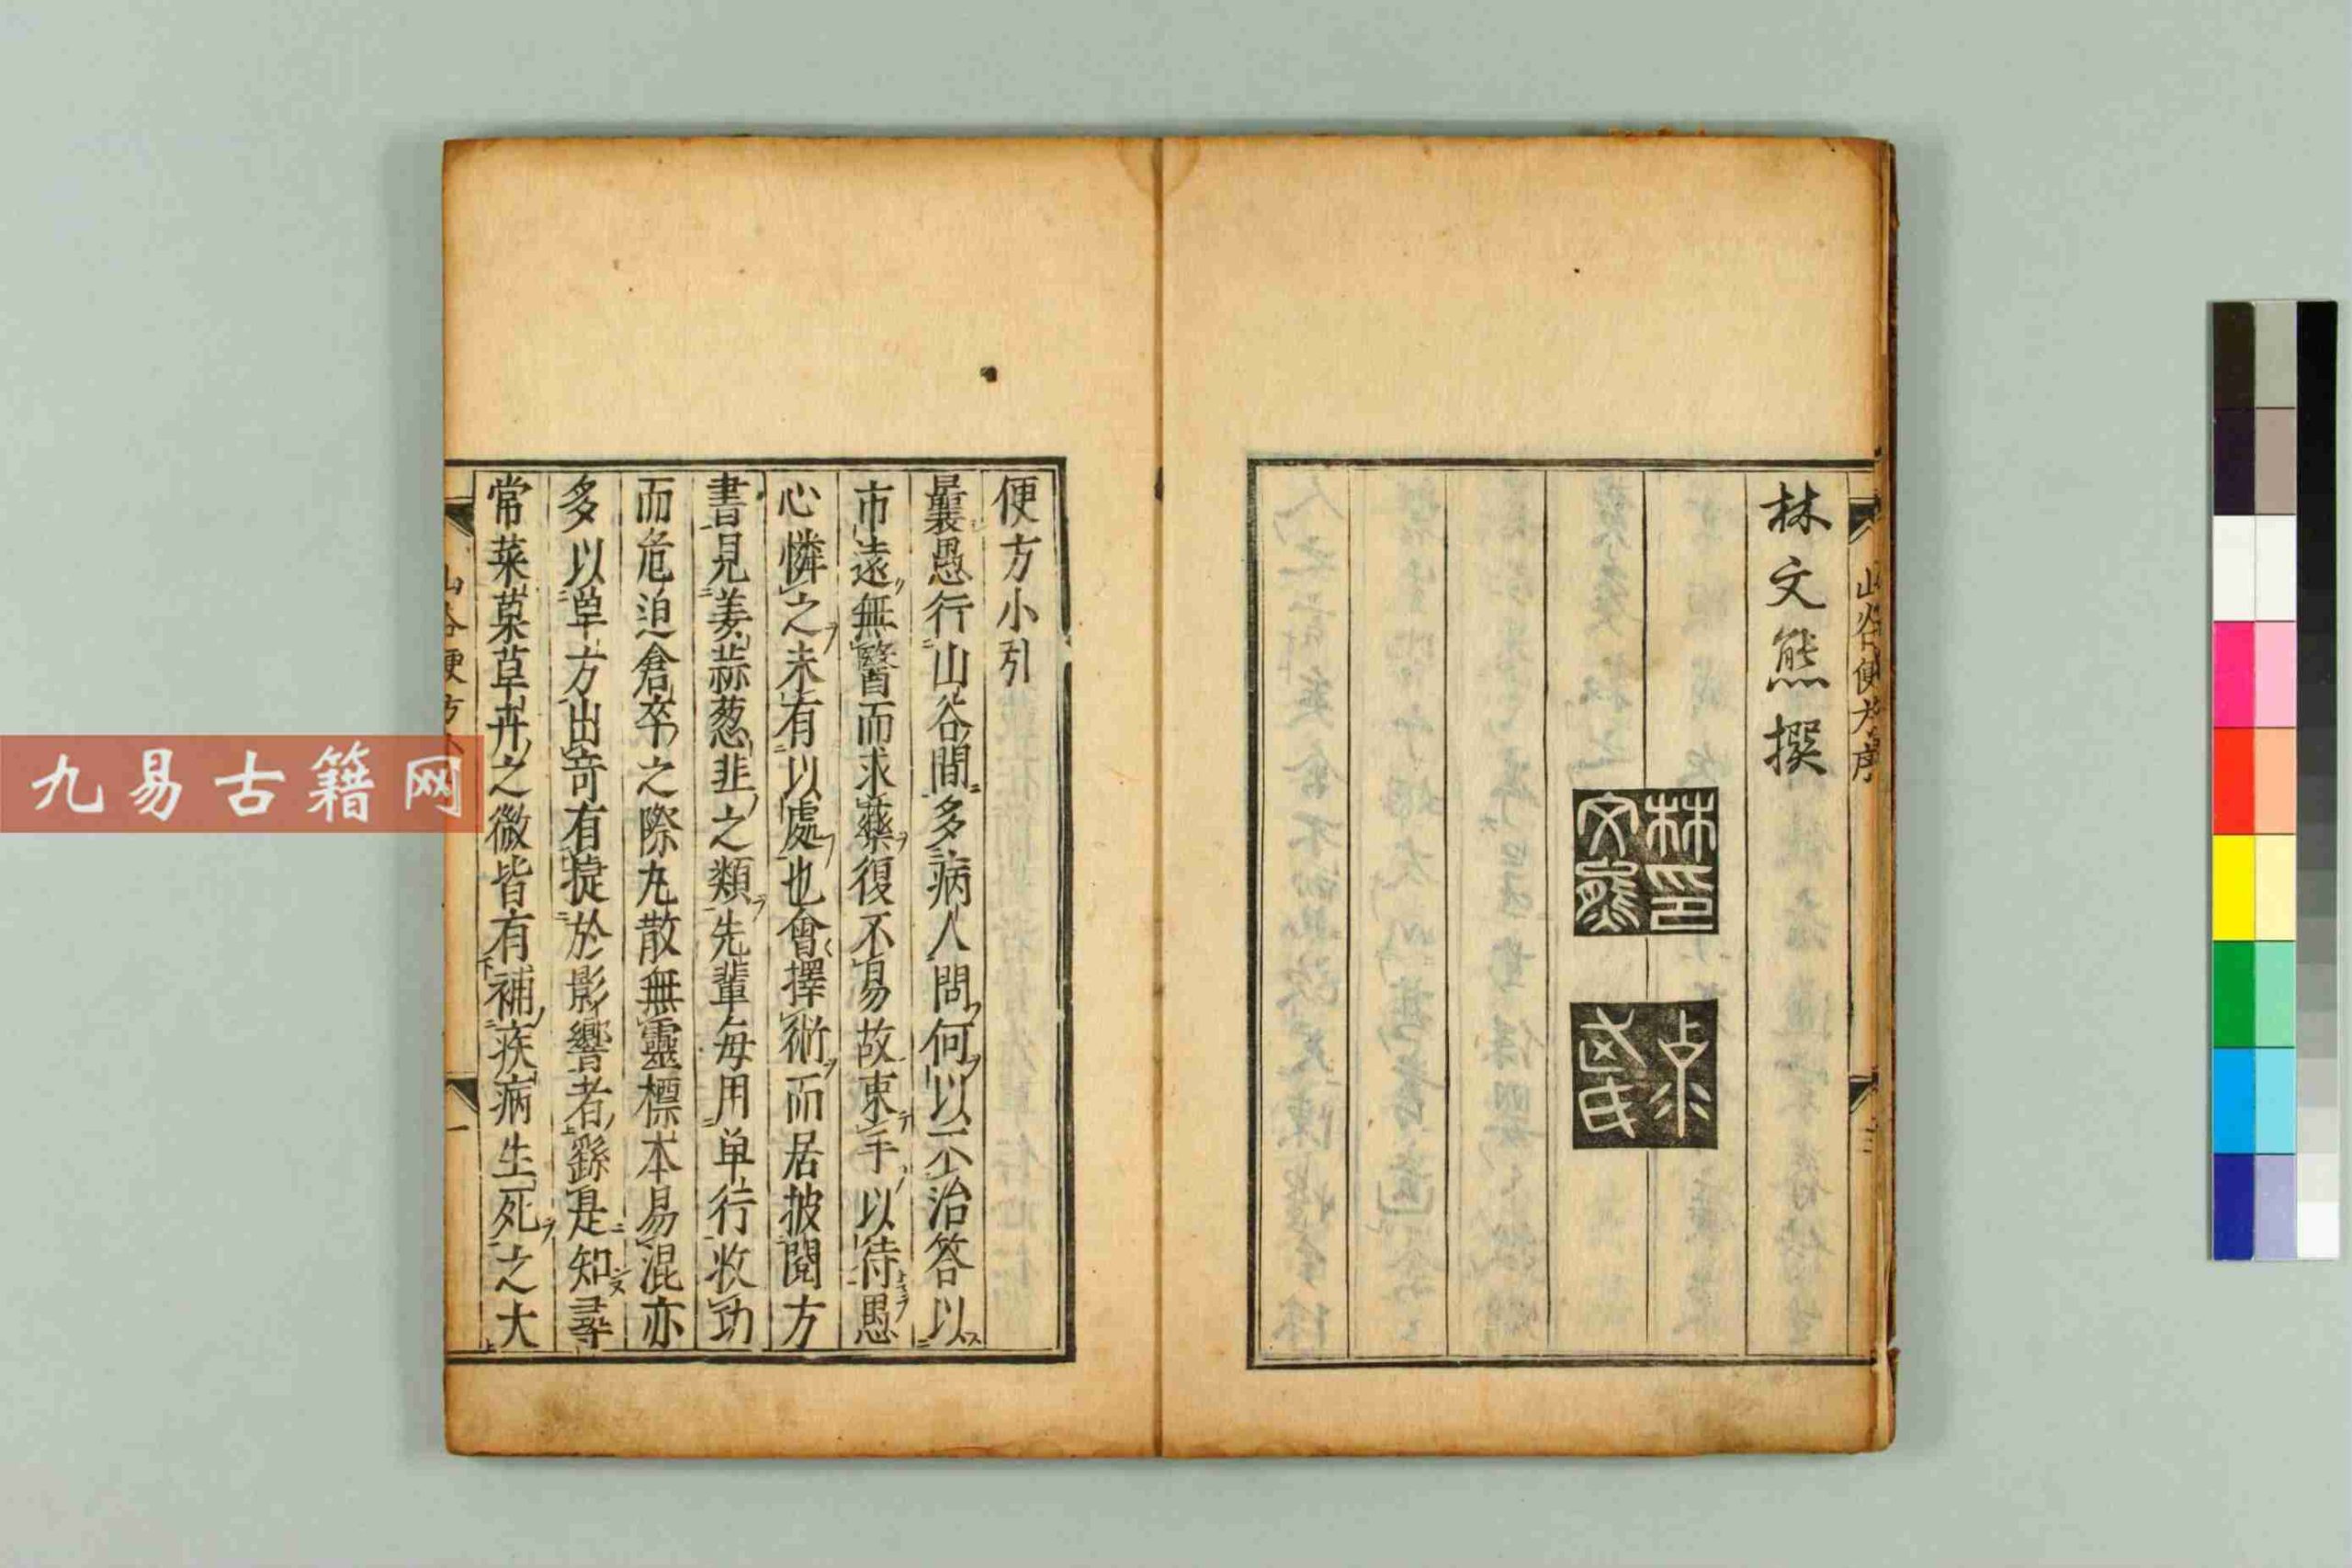 林文熊撰
林印文熊
山谷便方序
三
便方小引
曩愚行山谷間多病人問何以不治答以
市遠無醫而求藥復不易故束手以待愚
心憐之未有以處也會擇術而居披閱方
書見姜蒜葱韭之類先輩每用单行收功
而危迫倉卒之際丸散無靈標本易混亦
多以单方出奇有㨗於影響者繇是知尋
常菜菓草卉之微皆有補疾病生死之大
一
九易古籍网